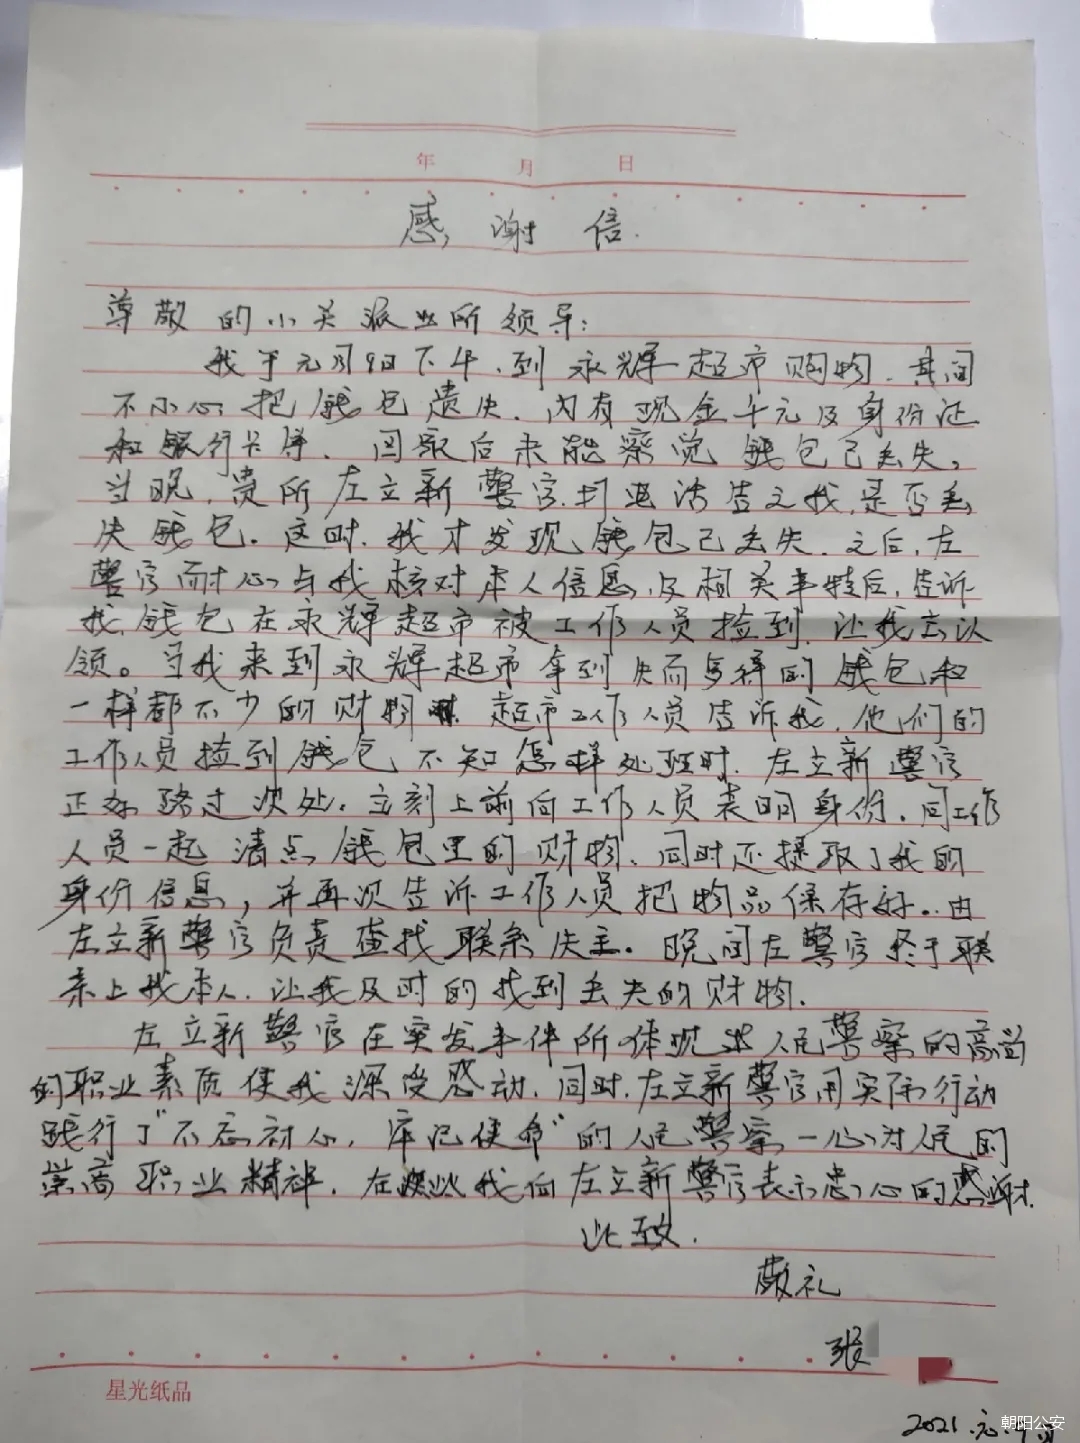 年 月 日
感谢信
尊敬的小关派出所领导：
我于元月9日下午，到永辉超市购物，其间
不小心把钱包遗失，内有现金千元及身份证
和银行卡等，回家后未能察觉钱包已丢失。
当晚，贵所左立新警官，打电话告之我，是否丢
失钱包。这时，我才发现钱包已丢失，之后，左
警官耐心与我核对本人信息，及相关事特后，告诉
我，钱包在永辉超市被工作人员捡到，让我去认
领。当我来到永辉超市拿到失而复得的钱包和
一样都不少的财物，超市工作人员告诉我，他们的
工作人员捡到钱包，不知怎样处理时，左立新警官
正好路过次处，立刻上前向工作人员表明身份，同工作
人员一起清点钱包里的财物，同时还提取了我的
身份信息，并再次告诉工作人员把物品保存好。由
左立新警官负责查找联系失主。晚间左警官终于联
系上我本人，让我及时的找到丢失的财物。
左立新警官在突发事件所体现出人民警察的高尚
的职业素质使我深受感动，同时，左立新警官用实际行动
践行了“不忘初心，牢记使命”的人民警察一心为人民的
崇高职业精神，在此我向左立新警官表示忠心的感谢。
此致
敬礼
张
星光纸品
2021.元.
朝阳公安